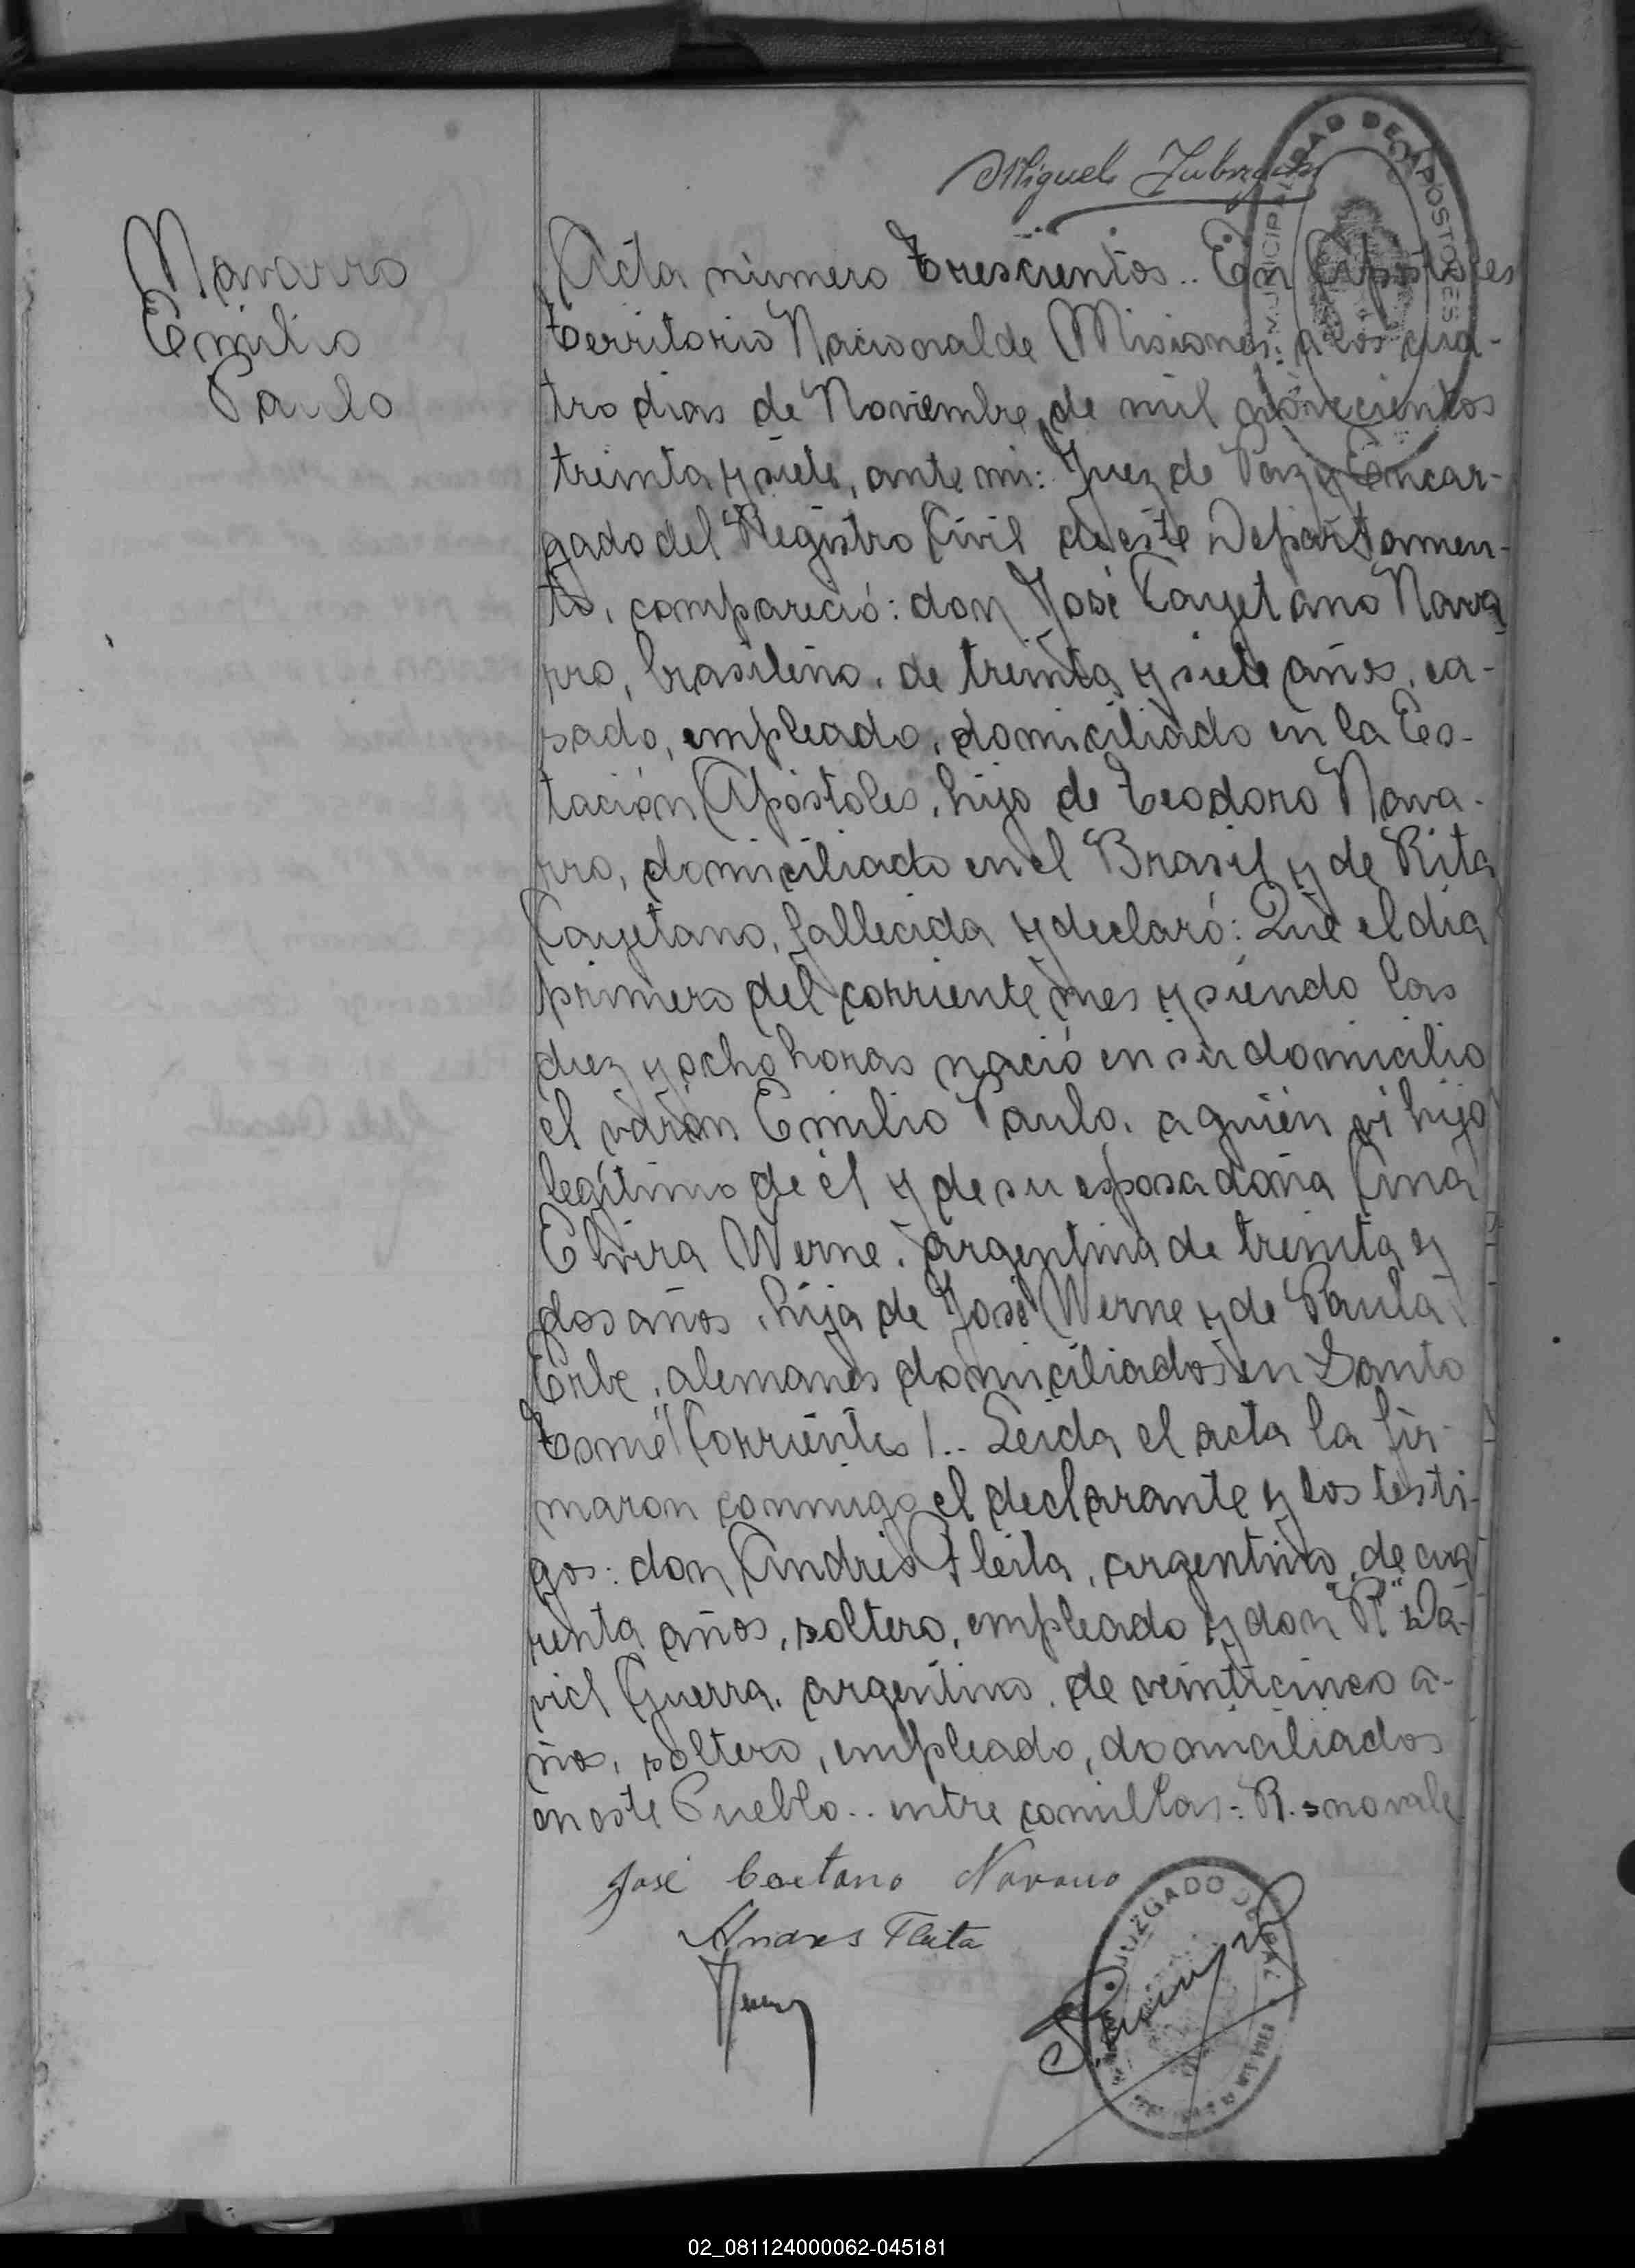 Miguel
MUNICIPALIDAD DE APOSTOLES
Navarro
Emilio
Paulo
Acta número trescientos.. En Apóstoles
territorio Nacional de Misiones, a los cua-
tro dias de Noviembre de mil novecientos
treinta y siete, ante mi: Juez de Paz y Encar-
gado del Registro Civil de este Departamen-
to, compareció: don José Cayetano Nava
rro, brasileño, de treinta y siete años, ca-
sado, empleado, domiciliado en la Es-
tación Apóstoles, hijo de teodoro Nava-
rro, domiciliado en el Brasil y de Rita
Cayetano, fallecida y declaró: Que el dia
primero del corriente mes y siendo las
diez y ocho horas nació en su domicilio
el varón Emilio Paulo, a quien vi hijo
legítimo de él y de su esposa doña Ana
Elvira Werne, argentina de treinta y
dos años, hija de José Werne y de Paula
Erbe, alemanes domiciliados en Santo
tomé (Corrientes).. Leida el acta la fir-
maron conmigo el declarante y los testi-
gos: don Andrés Fleita, argentino, de cua
renta años, soltero, empleado y don "R" Da-
vid Guerra, argentino, de veinticinco a-
ños, soltero, empleado, domiciliados
en este Pueblo.. entre comillas: R. no vale
José Caetano Navarro
Andres Fleita
JUZGADO DE PAZ
02_081124000062-045181